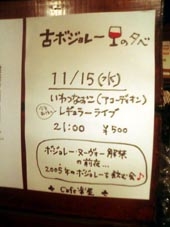 古ボジョレーの夕べ
11/15(水)
いわつなおこ(アコーディオン)
レギュラーライブ
21:00 ¥500
ボジョレーヌーヴォー解禁
の前夜...
2005年のボジョレーを飲む会♪
Cafe